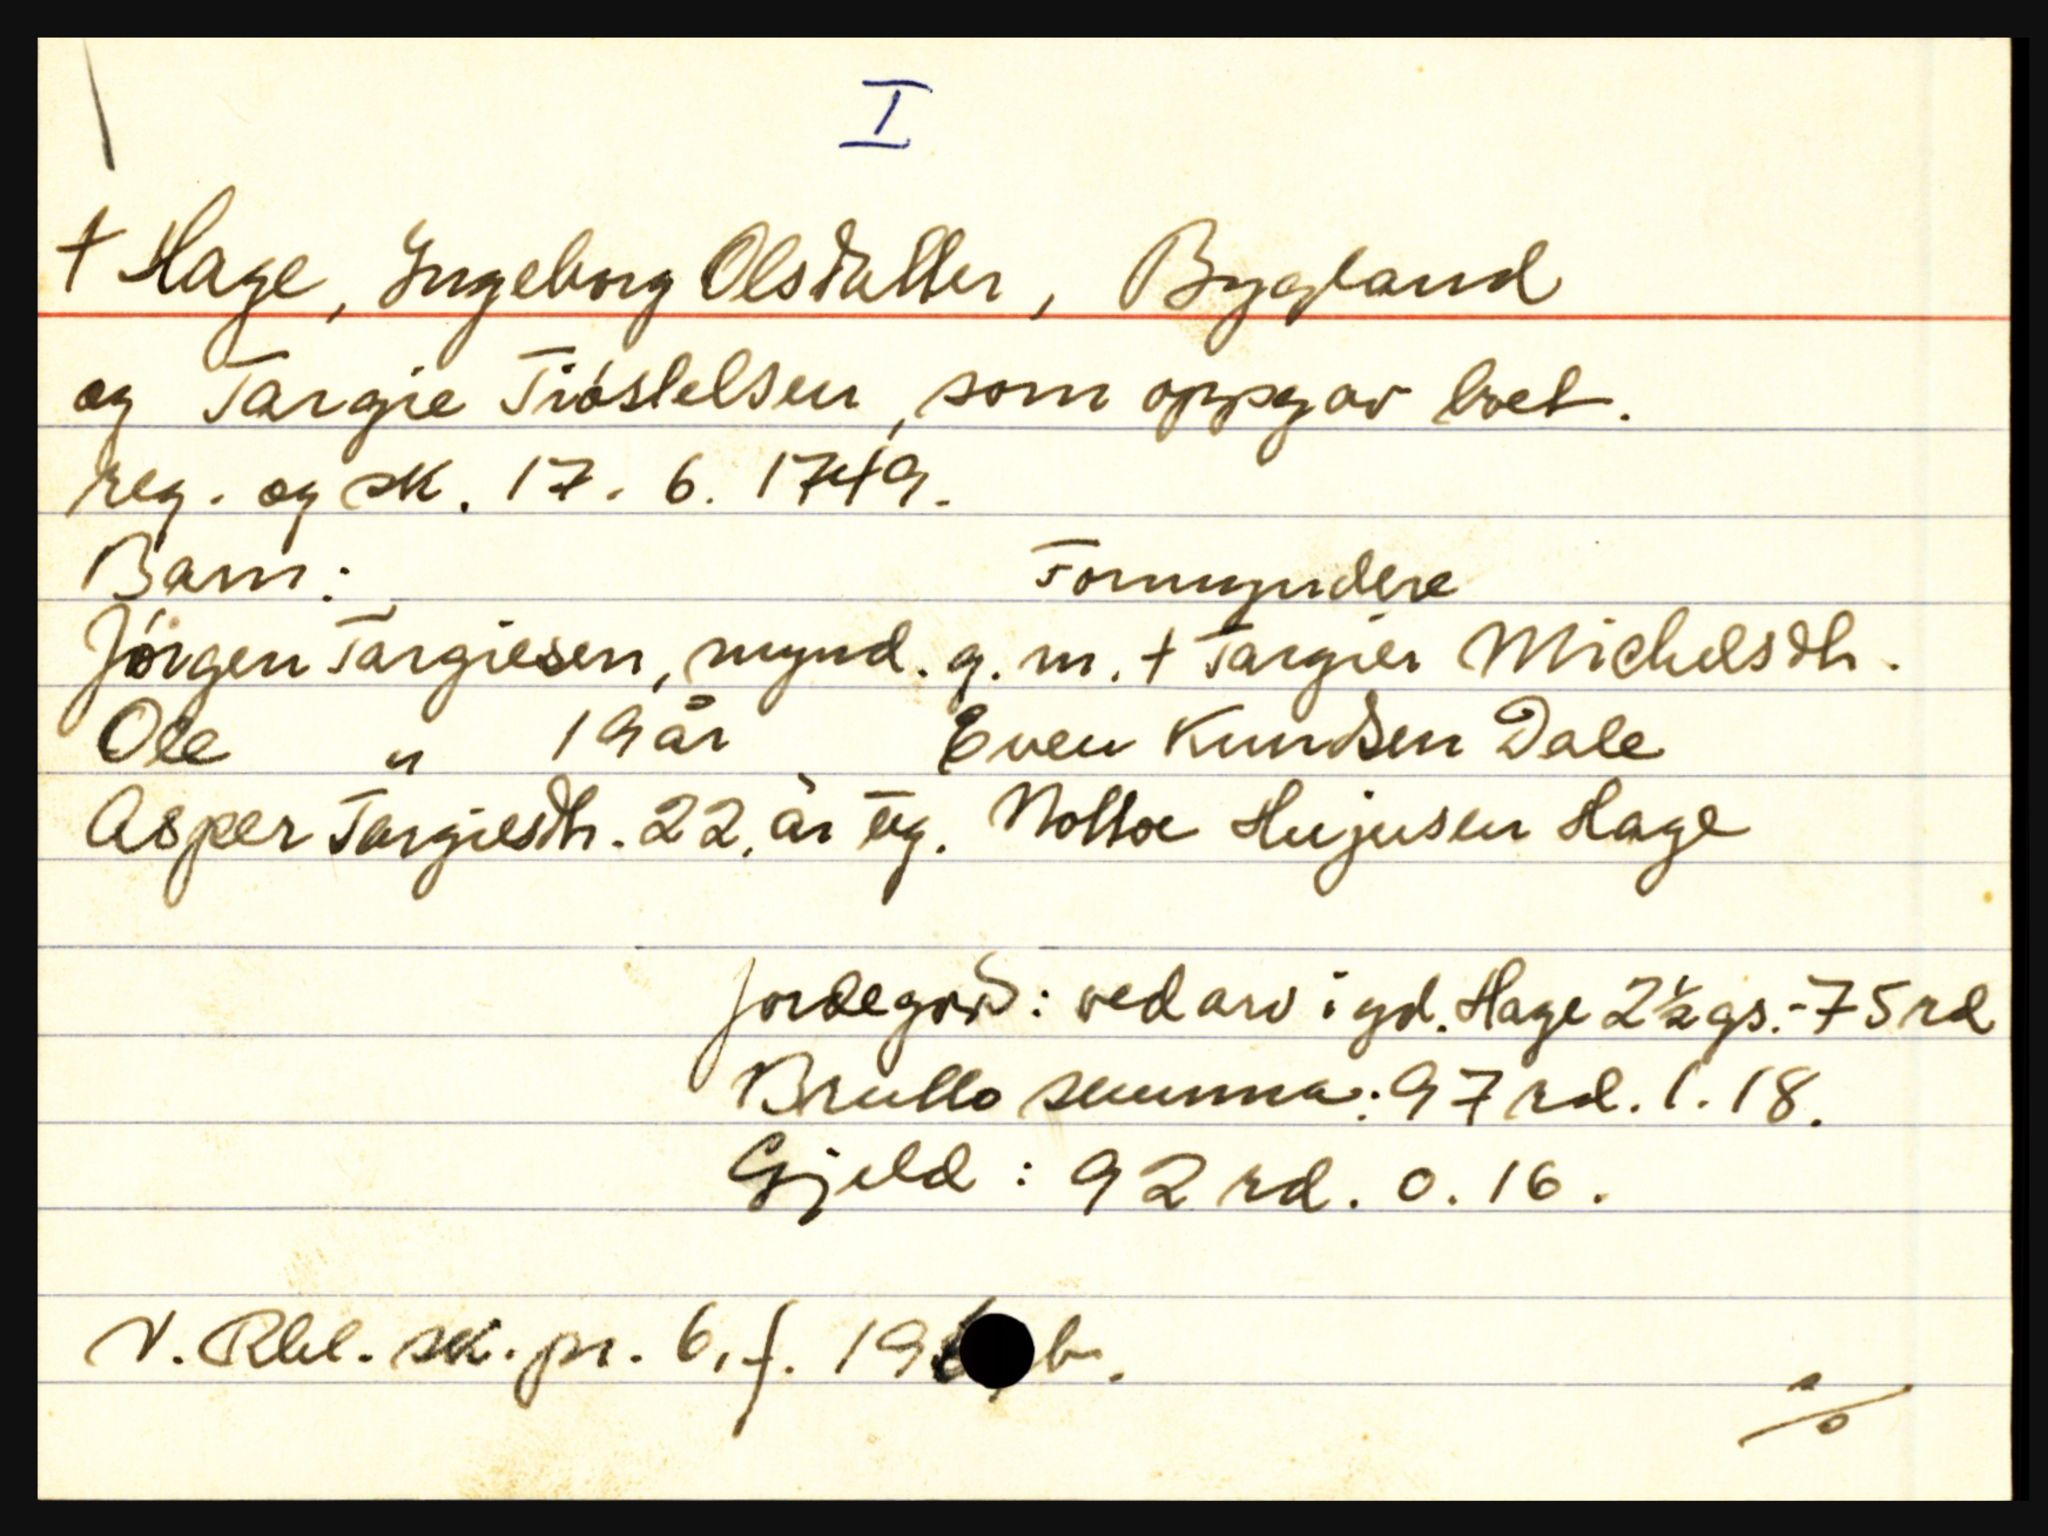 I
† Hage, Ingeborg Olsdatter, Bygland
og Targie Tiøstelsen, som oppgav boet.
reg. og sk. 17. 6. 1749.
Barn: Formyndere
Jørgen Targiesen, mynd. g. m. † Targier Michelsdtr.
Ole " 19 år Even Kundsen Dale
Asper Targiesdtr. 22. år ug. Nottoe Hujusen Hage
Jordegods: ved arv i gd. Hage 2½ gs. - 75 rd
Brutto summa: 97 rd. 1. 18.
Gjeld: 92 rd. 0. 16.
N. Rbl. sk. pr. 6, f. 196 b.